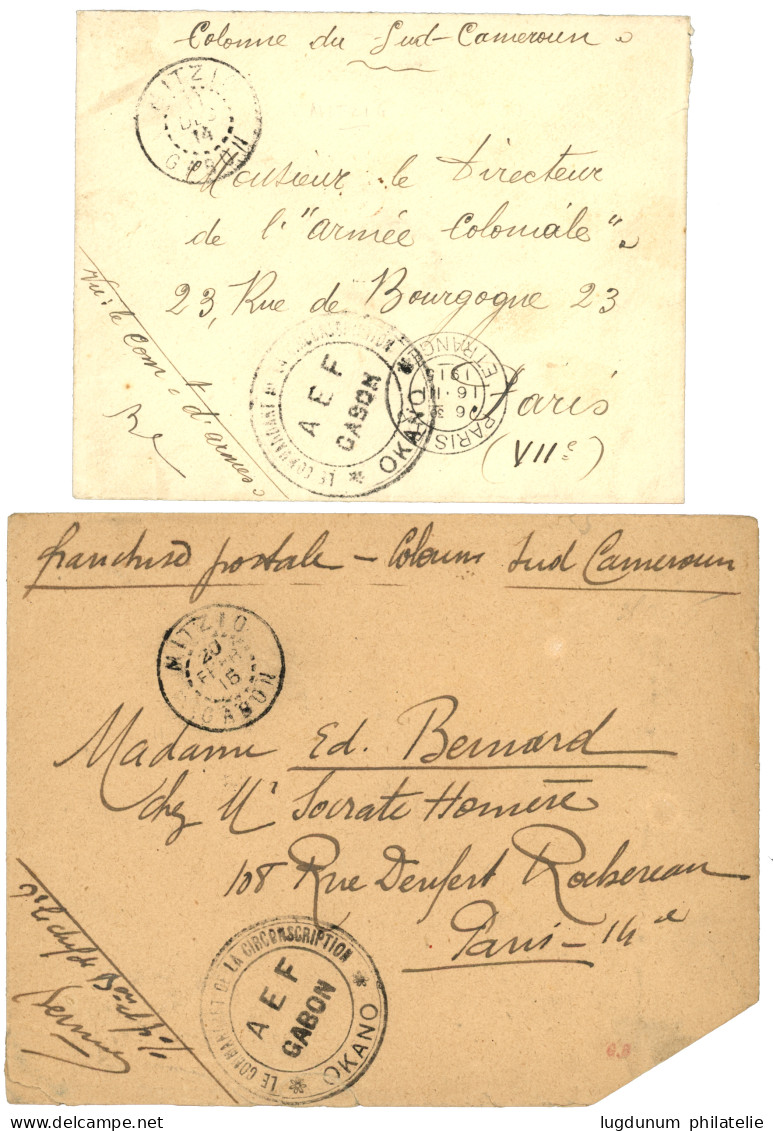 Colonne du Sud-Cameroun
MITZIC
DEC
14
GABON
Monsieur le Directeur
de l'"Armée Coloniale"
23, Rue de Bourgogne 23
Paris
(VIIe)
Vu: le Comt d'armes
LE COMMANDANT DE LA CIRCONSCRIPTION
A E F
GABON
* OKANO *
PARIS
ETRANGER
franchise postale - Colonne Sud Cameroun
MITZIC
20
FEVR
15
GABON
Madame Ed. Bernard
chez Mr Socrate Homère
108 Rue Denfert Rochereau
Paris - 14e
LE COMMANDANT DE LA CIRCONSCRIPTION
A E F
GABON
* OKANO *
lugdunum philatelie